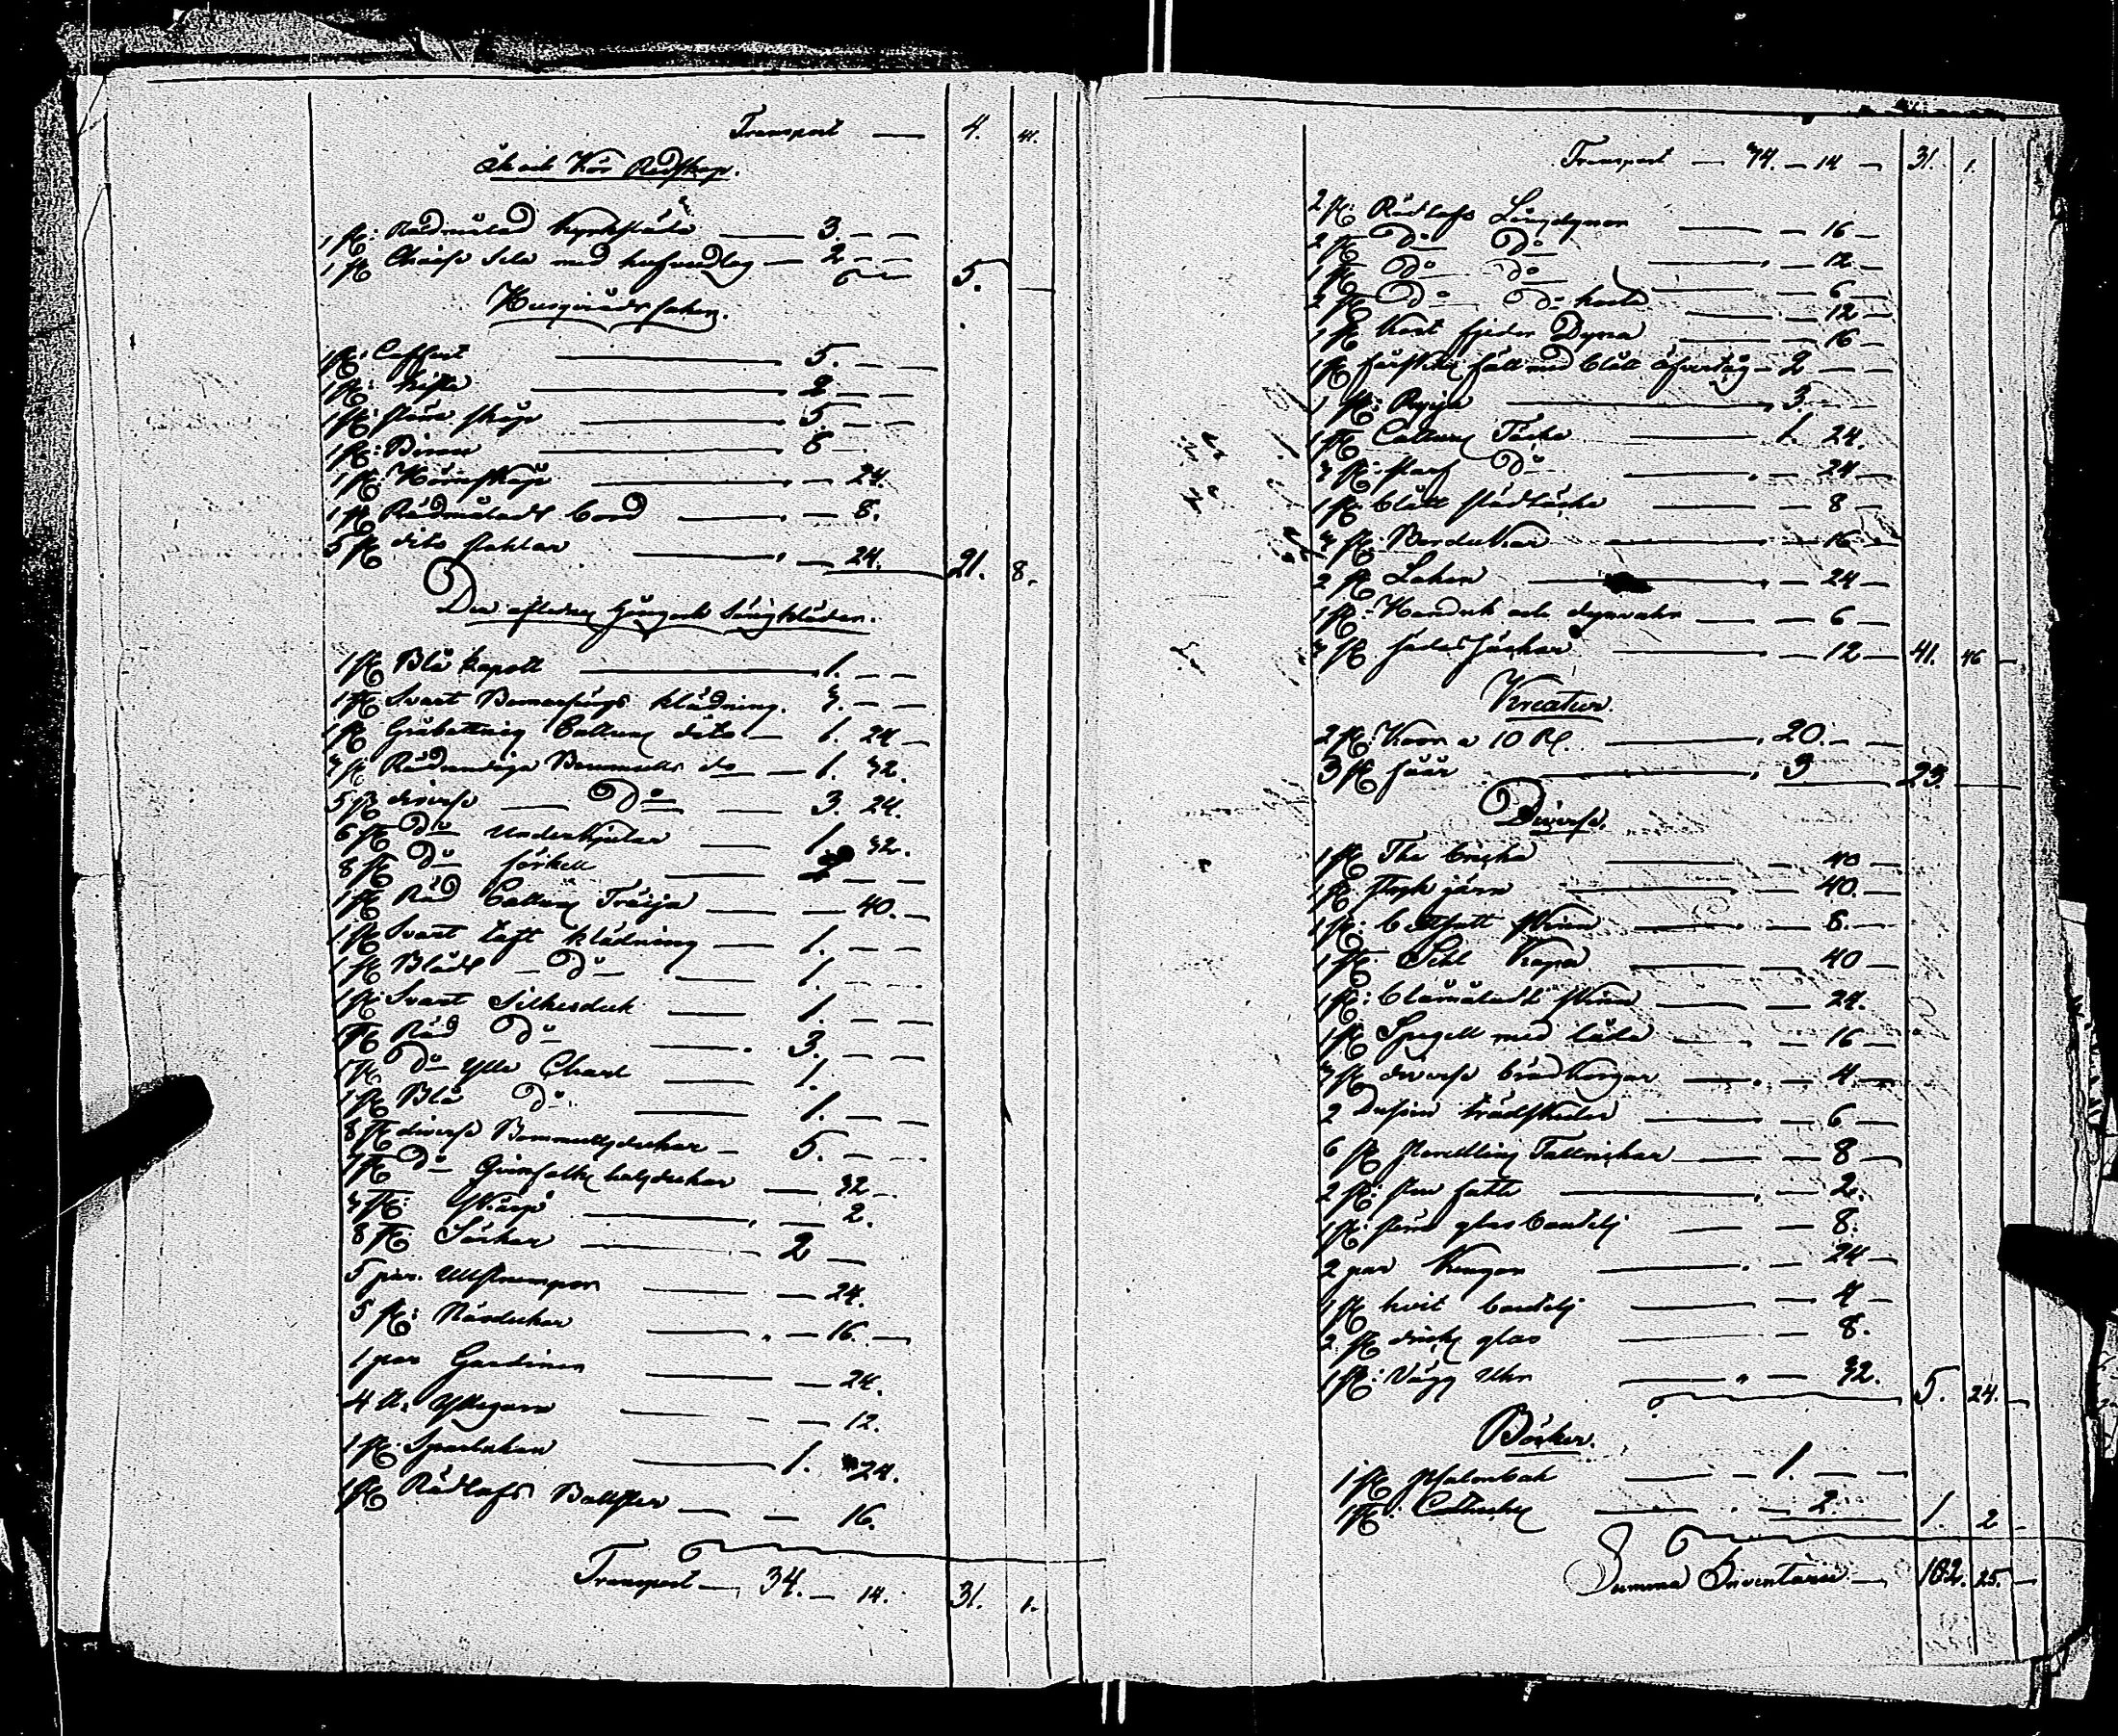 Transport — 4. 41.
Åk och Kör Redskap.
1 st: Rödmålad Kyrksläda — 3. — —
1 st Chaise sela med hufvudlag — 2 — —
5.
Husgeråds saker.
1 st: Coffert — 5. — —
1 st: kista — 2 — —
1 st: större skåp — 5. — —
1 st: Birou — 8 —
1 st: Hörnskåp — 24.
1 st Rödmåladt bord — 8.
5 st dito stohlar — 24. 21. 8.
Den aflednes Gång och Sängkläder.
1 st Blå kapott — 1. — —
1 st Svart Bomersings klädning. 3. — —
1 st Gråbottnig Cattuns dito — 1. 24 —
3 st Rödrandiga Bommulls do — 1. 32.
5 st diverse — Do — 3. 24.
6 st Do Underkjolar — 1. 32.
8 st Do förkell
1 st Röd Cattuns Tröija — 40. —
1 st Svart taft klädning — 1. — —
1 st Blådt — Do — 1. — —
1 st: Svart Silkesduk — 1. — —
1 st Röd Do — 3. — —
1 st Do Ylle Charl — 1.
1 st Blå Do — 1. — —
8 st diverse Bommullsdukar — 5. — —
1 st Do Qvinfolks halsdukar — 32 —
3 st: — 2.
8 st Särkar — 2 —
5 par. Ullstrumpor — 24.
5 st: Näsdukar — 16. —
1 par Gardiner — 24.
4 Yllegarn — 12.
1 st: Sparlakan — 1. 24.
1 st Rödlafs Bollster — 16.
Transport — 34. — 14. 31. 1.
Transport — 34. — 14 — 31. 1.
2 st: Rödlafs Långdynor — 16 —
2 st Do Do — 12 —
1 st Do Do — 6 —
2 st Do Do korta — 12 —
1 st kort fjeder Dyna — 16 —
1 st fårskins fäll med blått öfvertåg — 2 — —
1 st: Ryija — 3. — —
1 st Cattuns Täcke — 1. 24.
3 st: Do — 24 —
1 st: blått — 8 —
3 st: Bordukar — 16 —
2 st Lakan — 24 —
1 st: Handuk och dynvahr — 6 —
3 st — 12 — 41. 46 —
Kreatur.
2 st: Koor a 10 Rd. — 20. — —
3 st får — 3 — 23.
Diverse.
1 st The bricka — 40 —
1 st stryk järn — 40. —
1 st: skrin — 8. —
1 st: — 40 —
1 st: blåmåladt skrin — 24. —
1 st Spegell med låda — 16 —
3 st diverse brödkorgar — 4 —
2 Dussin trädskedar — 6 —
6 st Tallrickar — 8 —
2 st: sten fatt — 2.
1 st: större glas bouteilj — 8.
2 par Kengor — 24 —
1 st hvit bouteilj — 4 —
2 st dricks glas — 8.
1 st: Vägg Uhr — 32. 5. 24. —
Böcker.
1 st Psalmbok — 1. — —
1 st: — 2. 1. 2
Summa Inventarii — 102. 25. —